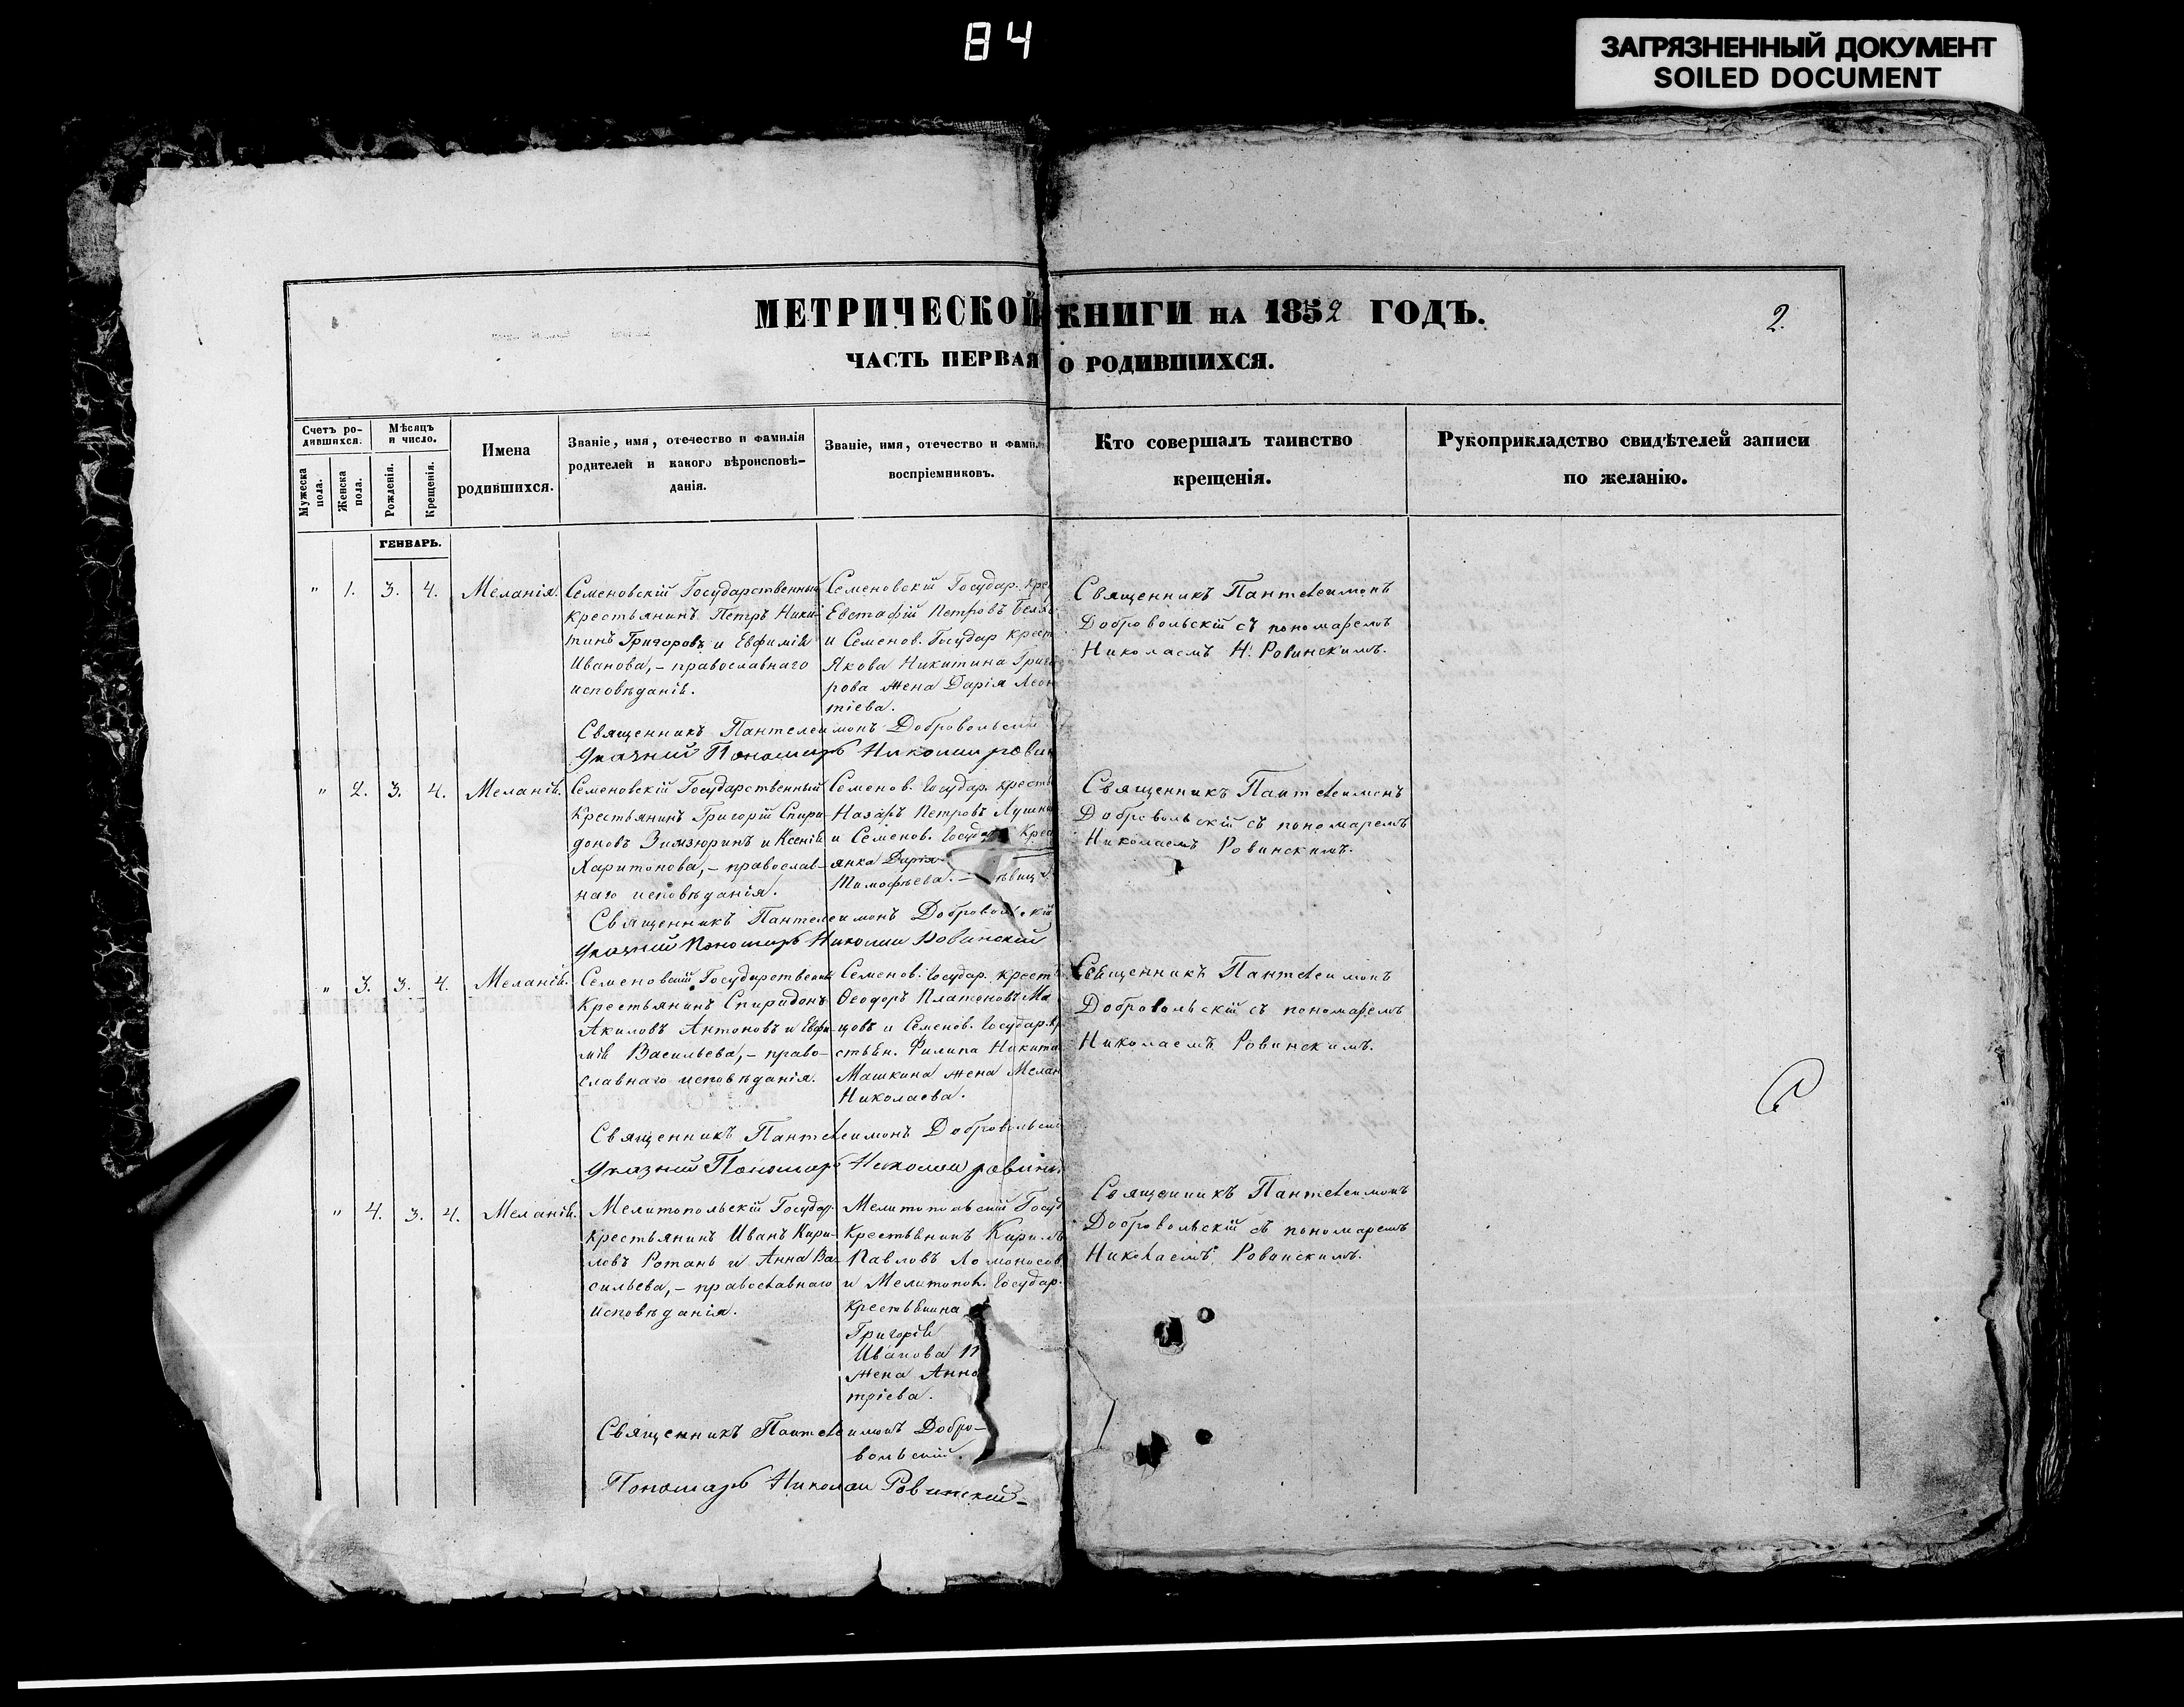 84
ЗАГРЯЗНЕННЫЙ ДОКУМЕНТ
SOILED DOCUMENT
МЕТРИЧЕСКОЙ КНИГИ НА 1852 ГОДЪ.
2.
ЧАСТЬ ПЕРВАЯ О РОДИВШИХСЯ.
Счетъ ро-
дившихся.
Мужеска
пола.
Женска
пола.
Мѣсяцъ
и число.
Рожденія.
Крещенія.
Имена
родившихся.
Званіе, имя, отечество и фамилія
родителей и какого вѣроисповѣ-
данія.
Званіе, имя, отечество и фами
воспріемниковъ.
Кто совершалъ таинство
крещенія.
Рукоприкладство свидѣтелей записи
по желанію.
ГЕНВАРЬ.
" 1. 3. 4. Меланія.
Семеновскій Государственный
крестьянинъ Петръ Ники-
тинъ Григоровъ и Евфимія
Иванова, - православнаго
исповѣданія.
Семеновскій Государ. кре
Евстафій Петровъ
и Семенов. Государ крест
Якова Никитина Григо
рова жена Дарія Леон
тіева.
Священникъ Пантелеимонъ
Добровольскій съ пономаремъ
Николаемъ Н. Ровинскимъ.
Священникъ Пантелеимонъ Добровольскій
Указный Пономарь Николай Ровин
" 2. 3. 4. Меланія.
Семеновскій Государственный
Крестьянинъ Григорій Спири-
доновъ Зимзюринъ и Ксенія
Харитонова, - православ-
наго исповѣданія.
Семенов. Государ. крест
Назаръ Петровъ
и Семенов. Государ Крес
янка Дарія
Тимофѣева. -
Священникъ Пантелеимонъ
Добровольскій съ пономаремъ
Николаемъ Ровинскимъ.
Священникъ Пантелеимонъ Добровольскій
Указный Пономарь Николай Ровинскій
" 3. 3. 4. Меланія.
Семеновскій Государствен
Крестьянинъ Спиридонъ
Акиловъ Антоновъ и Евфи-
мія Васильева, - право-
славнаго исповѣданія.
Семенов. Государ. крест
Ѳеодоръ Платоновъ Ма
цовъ и Семенов. Государ. кр
стьян. Филипа Никити
Машкина жена Мелан
Николаева.
Священникъ Пантелеимонъ
Добровольскій съ пономаремъ
Николаемъ Ровинскимъ.
Священникъ Пантелеимонъ Добровольскі
Указный Пономарь Николай Ровинс
" 4. 3. 4. Меланія.
Мелитопольскій Государ.
крестьянинъ Иванъ Кири-
ловъ Ротань и Анна Ва-
сильева, - православнаго
исповѣданія.
Мелитопольскій Госуд
Крестьянинъ Кирилъ
Павловъ Ломоносов
и Мелитопол. Государ.
крестьянина
Григорія
Иванова
жена Анна
тріева.
Священникъ Пантелеимонъ
Добровольскій съ пономаремъ
Николаемъ Ровинскимъ.
Священникъ Пантелеимонъ Добро-
вольскій.
Пономарь Николай Ровинскій